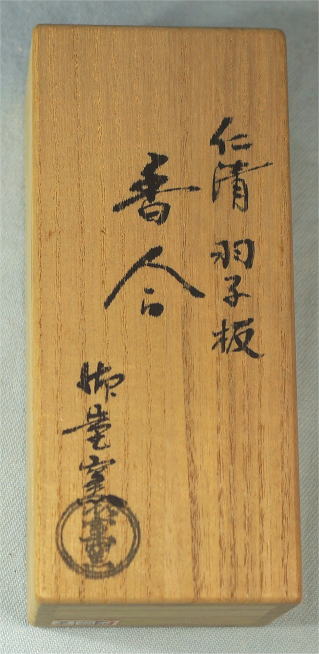 仁清 羽子板
香合
御室窯